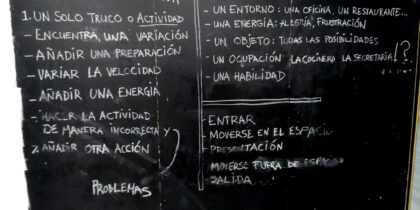 1. UN SOLO TRUCO o ACTIVIDAD
- ENCUENTRA, UNA VARIACIÓN
- AÑADIR UNA PREPARACIÓN
- VARIAR LA VELOCIDAD
- AÑADIR UNA ENERGÍA
- HACER LA ACTIVIDAD
DE MANERA INCORRECTA Y
2. AÑADIR OTRA ACCIÓN
PROBLEMAS
- UN ENTORNO: UNA OFICINA, UN RESTAURANTE...
- UNA ENERGÍA: ALEGRÍA, FRUSTRACIÓN
- UN OBJETO: TODAS LAS POSIBILIDADES
- UN OCUPACIÓN ¿LA COCINERA LA SECRETARIA!?
- UNA HABILIDAD
- ENTRAR
- MOVERSE EN EL ESPACIO
- PRESENTACIÓN
- MOVERSE FUERA DE ESPACIO
- SALIDA